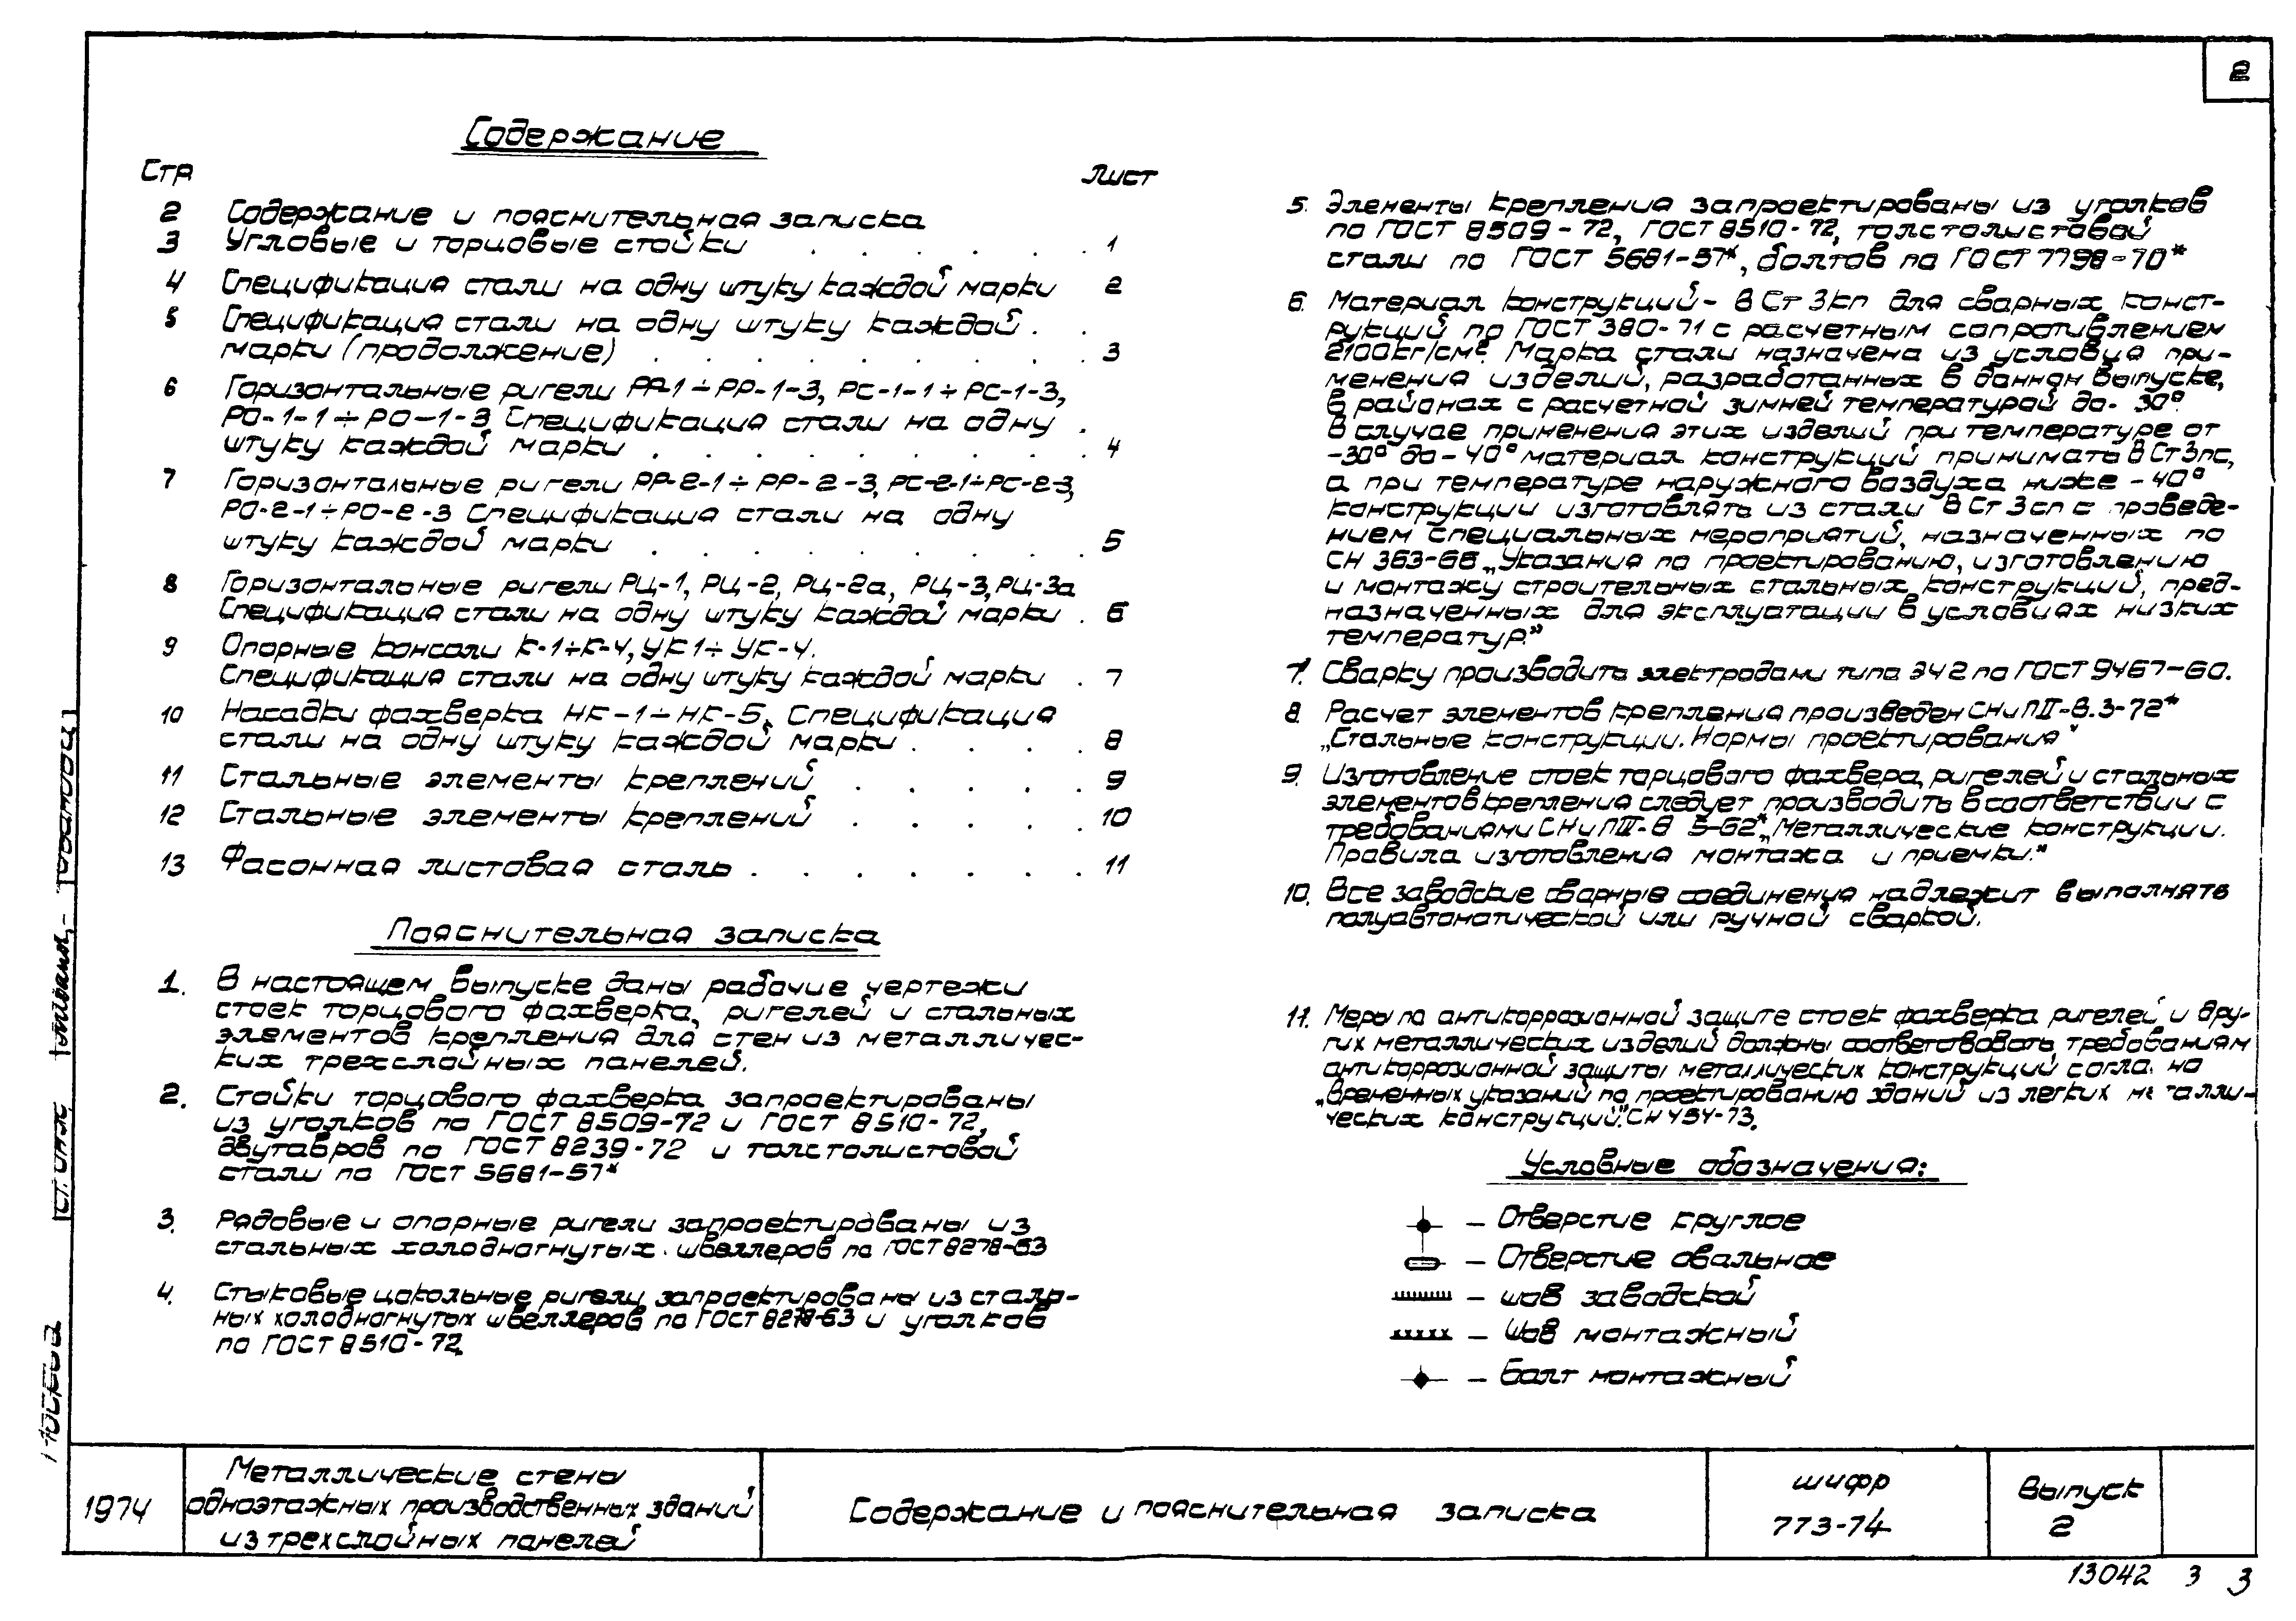 2
Содержание
Стр Лист
2 Содержание и пояснительная записка
3 Угловые и торцовые стойки . . . . . . 1
4 Спецификация стали на одну штуку каждой марки 2
5 Спецификация стали на одну штуку каждой . .
марки (продолжение) . . . . . . . . . 3
6 Горизонтальные ригели РР-1 ÷ РР-1-3, РС-1-1 ÷ РС-1-3,
РО-1-1 ÷ РО-1-3 Спецификация стали на одну .
штуку каждой марки . . . . . . . . . 4
7 Горизонтальные ригели РР-2-1 ÷ РР-2-3, РС-2-1 ÷ РС-2-3,
РО-2-1 ÷ РО-2-3 Спецификация стали на одну
штуку каждой марки . . . . . . . . . 5
8 Горизонтальные ригели РЦ-1, РЦ-2, РЦ-2а, РЦ-3, РЦ-3а
Спецификация стали на одну штуку каждой марки . 6
9 Опорные консоли К-1÷К-4, УК1÷УК-4.
Спецификация стали на одну штуку каждой марки . 7
10 Насадки фахверка НК-1÷НК-5. Спецификация
стали на одну штуку каждой марки . . . . 8
11 Стальные элементы креплений . . . . . 9
12 Стальные элементы креплений . . . . . 10
13 Фасонная листовая сталь . . . . . . . 11
Пояснительная записка
1. В настоящем выпуске даны рабочие чертежи
стоек торцового фахверка, ригелей и стальных
элементов крепления для стен из металличес-
ких трехслойных панелей.
2. Стойки торцового фахверка запроектированы
из уголков по ГОСТ 8509-72 и ГОСТ 8510-72,
двутавров по ГОСТ 8239-72 и толстолистовой
стали по ГОСТ 5681-57*
3. Рядовые и опорные ригели запроектированы из
стальных холодногнутых швеллеров по ГОСТ 8278-63
4. Стыковые цокольные ригели запроектированы из сталь-
ных холодногнутых швеллеров по ГОСТ 8278-63 и уголков
по ГОСТ 8510-72.
5. Элементы крепления запроектированы из уголков
по ГОСТ 8509-72, ГОСТ 8510-72, толстолистовой
стали по ГОСТ 5681-57*, болтов по ГОСТ 7798-70*
6. Материал конструкций - В Ст 3кп для сварных конст-
рукций по ГОСТ 380-71 с расчетным сопротивлением
2100кг/см². Марка стали назначена из условия при-
менения изделий, разработанных в данном выпуске,
в районах с расчетной зимней температурой до -30°.
В случае применения этих изделий при температуре от
-30° до -40° материал конструкций принимать В Ст3пс,
а при температуре наружного воздуха ниже -40°
конструкции изготовлять из стали В Ст 3сп с проведе-
нием специальных мероприятий, назначенных по
СН 363-66 „Указания по проектированию, изготовлению
и монтажу строительных стальных конструкций, пред-
назначенных для эксплуатации в условиях низких
температур"
7. Сварку производить электродами типа Э42 по ГОСТ 9467-60.
8. Расчет элементов крепления произведен СНиП II-В.3-72*
„Стальные конструкции. Нормы проектирования"
9. Изготовление стоек торцового фахвера, ригелей и стальных
элементов крепления следует производить в соответствии с
требованиями СНиП III-В 5-62*„Металлические конструкции.
Правила изготовления монтажа и приемки."
10. Все заводские сварные соединения надлежит выполнять
полуавтоматической или ручной сваркой.
11. Меры по антикоррозионной защите стоек фахверка ригелей и дру-
гих металлических изделий должны соответствовать требованиям
антикоррозионной защиты металлических конструкций согла. но
„Временных указаний по проектированию зданий из легких металли-
ческих конструкций". СН 454-73.
Условные обозначения:
– Отверстие круглое
– Отверстие овальное
– шов заводской
– Шов монтажный
– Болт монтажный
1974
Металлические стены
одноэтажных производственных зданий
из трехслойных панелей
Содержание и пояснительная записка
шифр
773-74
Выпуск
2
13042 3 3
Москва
Ст. инж